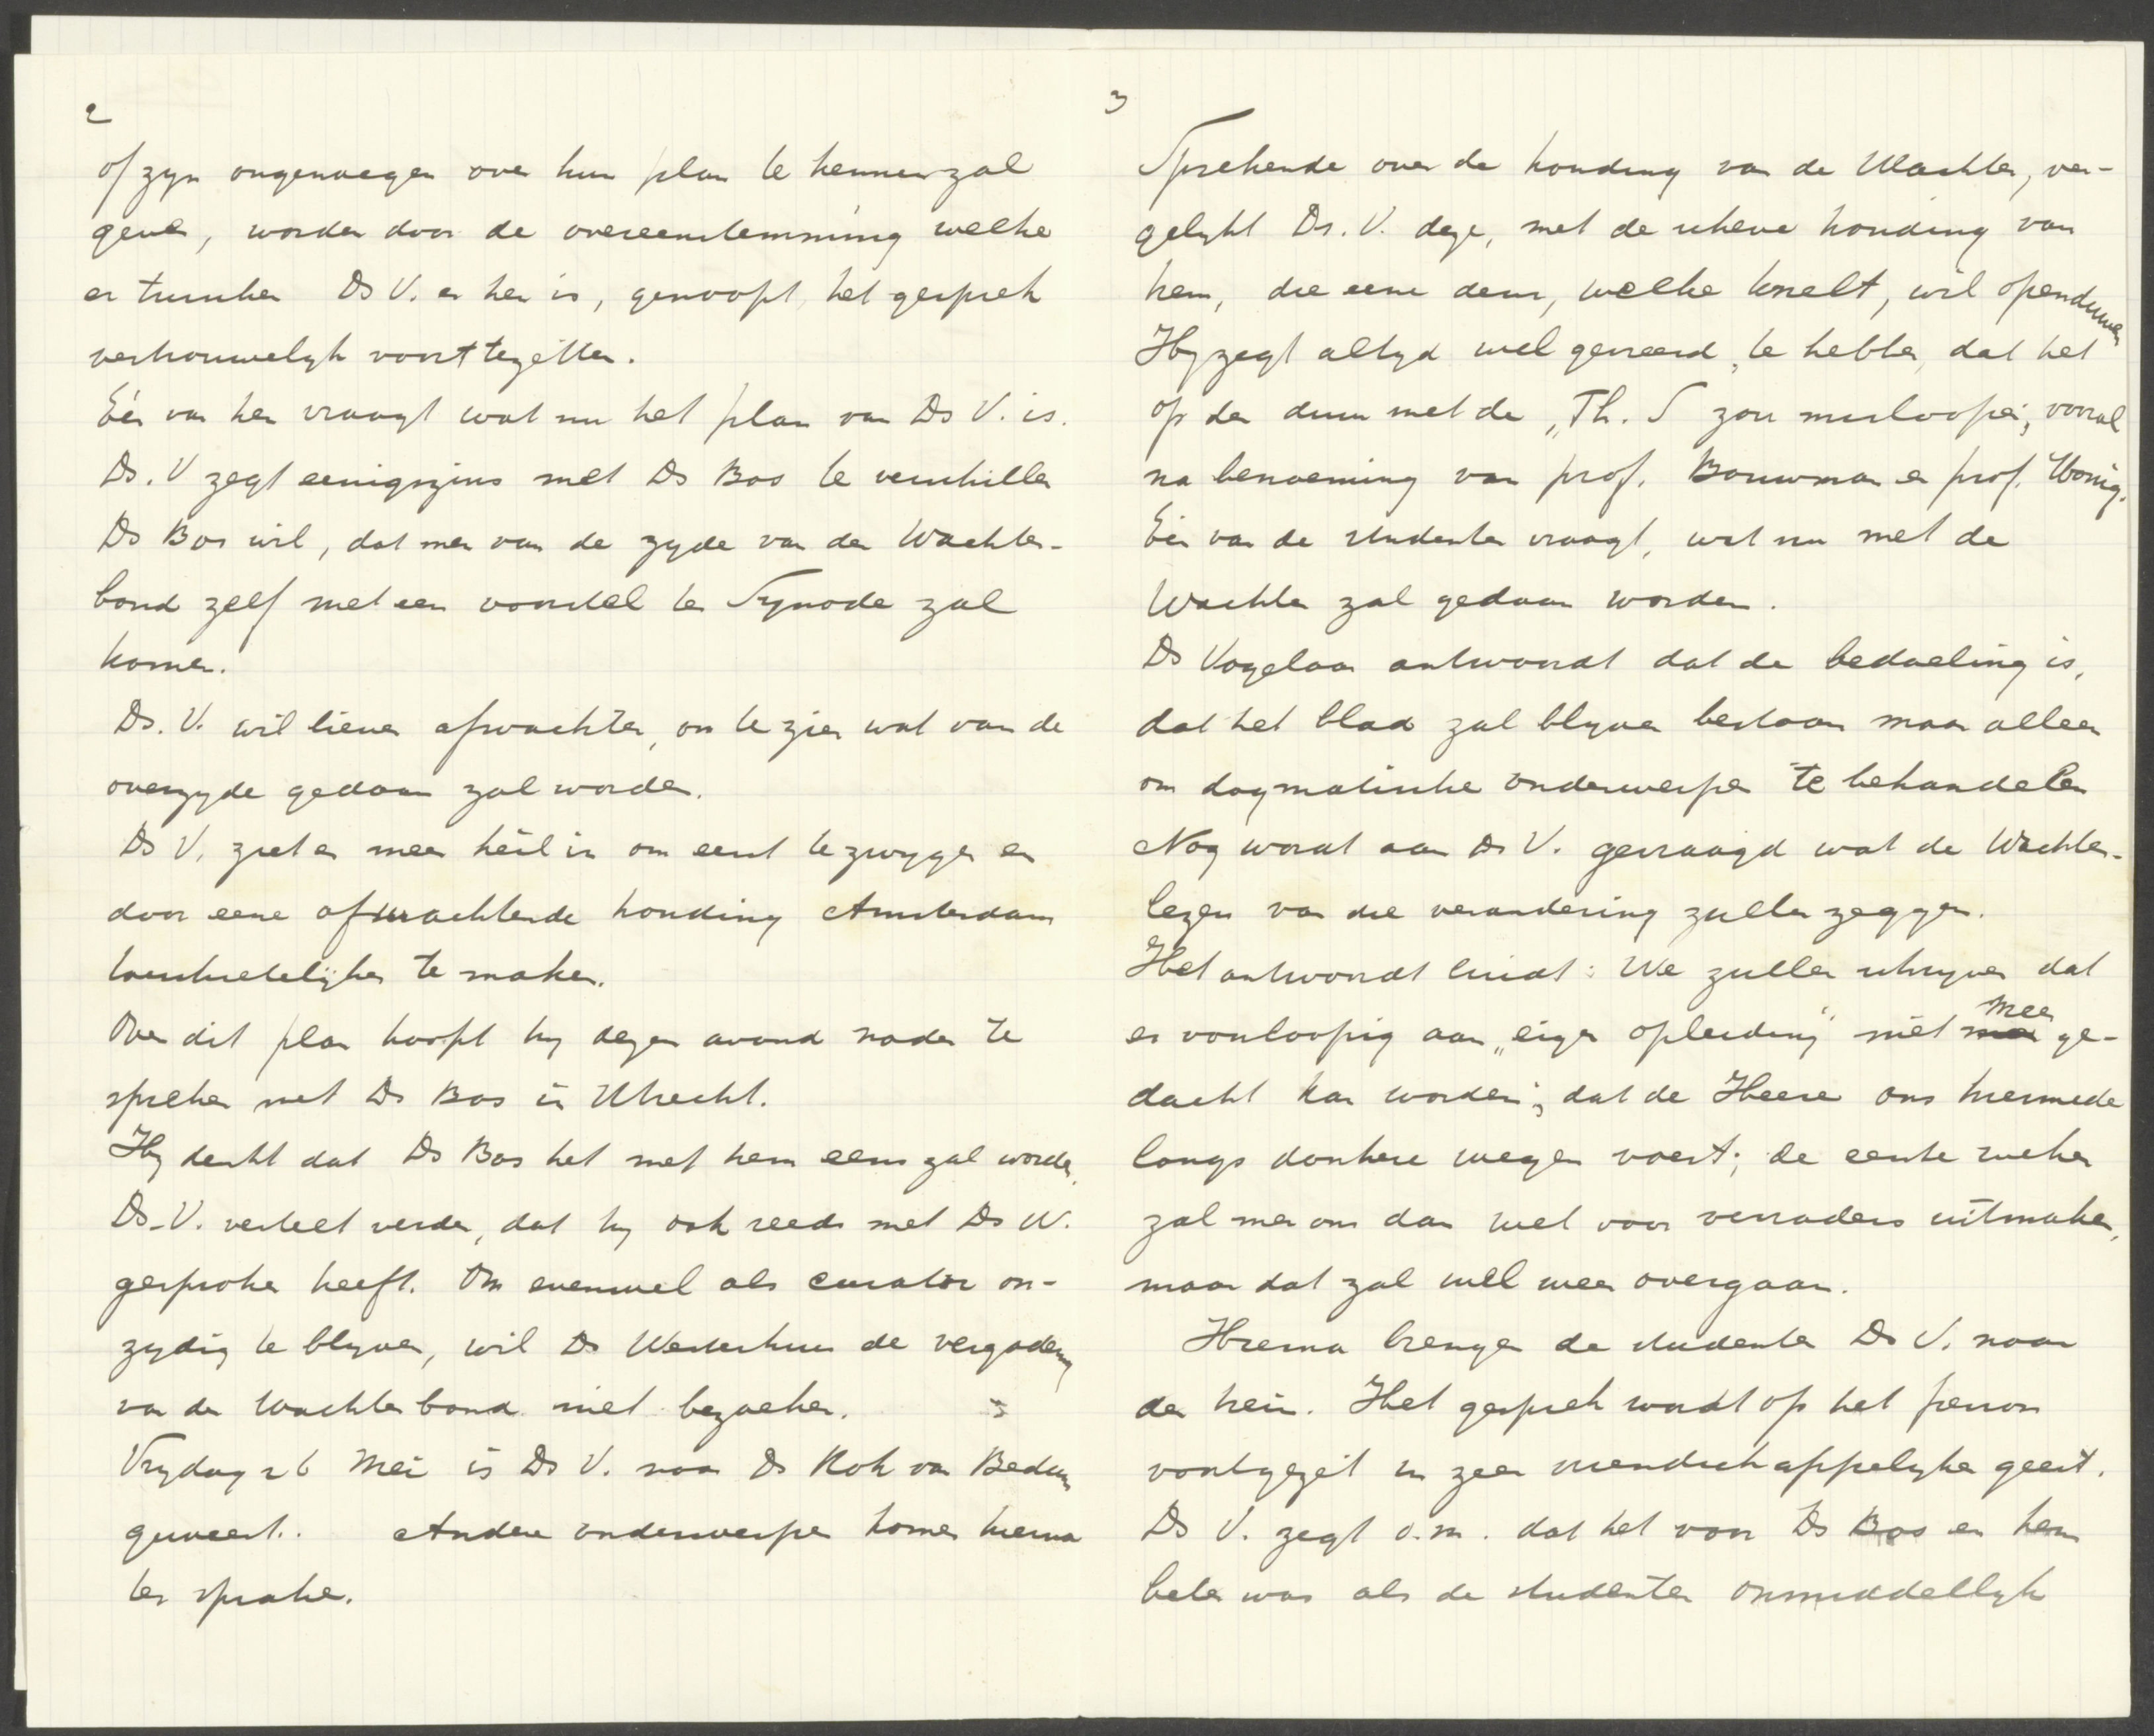 2
of zyn ongenoegen over hun plan te kennen zal
geven, worden door de overeenstemming welke
er tusschen Ds V. en hen is, genoopt, het gesprek
vertrouwelyk voort te zetten.
Eén van hen vraagt wat nu het plan van Ds V. is.
Ds. V zegt eenigszins met Ds Bos te verschillen
Ds Bos wil, dat men van de zyde van den Wachter-
bond zelf met een voorstel ter Synode zal
komen.
Ds. V. wil liever afwachten, om te zien wat van de
overzyde gedaan zal worden.
Ds V. ziet er meer heil in om eerst te zwygen en
door eene afwachtende houding Amsterdam
toeschietelijker te maken.
Over dit plan hoopt hy dezen avond nader te
spreken met Ds Bos in Utrecht.
Hy denkt dat Ds Bos het met hem eens zal worden.
Ds. V. vertelt verder, dat hy ook reeds met Ds W.
gesproken heeft. Om evenwel als curator on-
zydig te blyven, wil Ds Westerhuis de vergadering
van den Wachterbond niet bezoeken.
Vrydag 26 Mei is Ds V. naar Ds Kok van Bedum
geweest. Andere onderwerpen komen hierna
ter sprake.
3
Sprekende over de houding van de Wachter, ver-
gelykt Ds. V. deze, met de scheve houding van
hem, die eene deur, welke knelt, wil openduwen
Hy zegt altyd wel gevreesd te hebben, dat het
op den duur met de „Th. S zou misloopen, vooral
na benoeming van prof. Bouwman en prof. Honig.
Eén van de studenten vraagt, wat nu met de
Wachter zal gedaan worden.
Ds Vogelaar antwoordt dat de bedoeling is,
dat het blad zal blyven bestaan maar alleen
om dogmatische onderwerpen te behandelen
Nog wordt aan Ds V. gevraagd wat de Wachter-
lezers van die verandering zullen zeggen.
Het antwoordt luidt: We zullen schryven dat
er voorloopig aan „eigen opleiding" niet meer ge-
dacht kan worden; dat de Heere ons hiermede
langs donkere wegen voert; de eerste weken
zal men ons dan wel voor verraders uitmaken,
maar dat zal wel weer overgaan.
Hierna brengen de studenten Ds V. naar
den trein. Het gesprek wordt op het perron
voortgezet in zeer vriendschappelyken geest.
Ds V. zegt o.m. dat het voor Ds Bos en hem
beter was als de studenten onmiddellyk